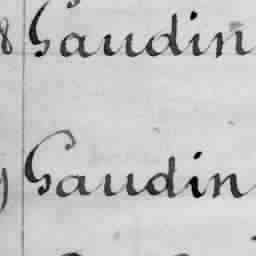 8 Gaudin
Gaudin